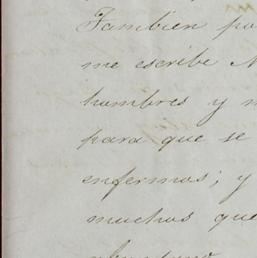 Tambien po
me escribe N
hombres y m
para que se
enfermos; y
muchos que